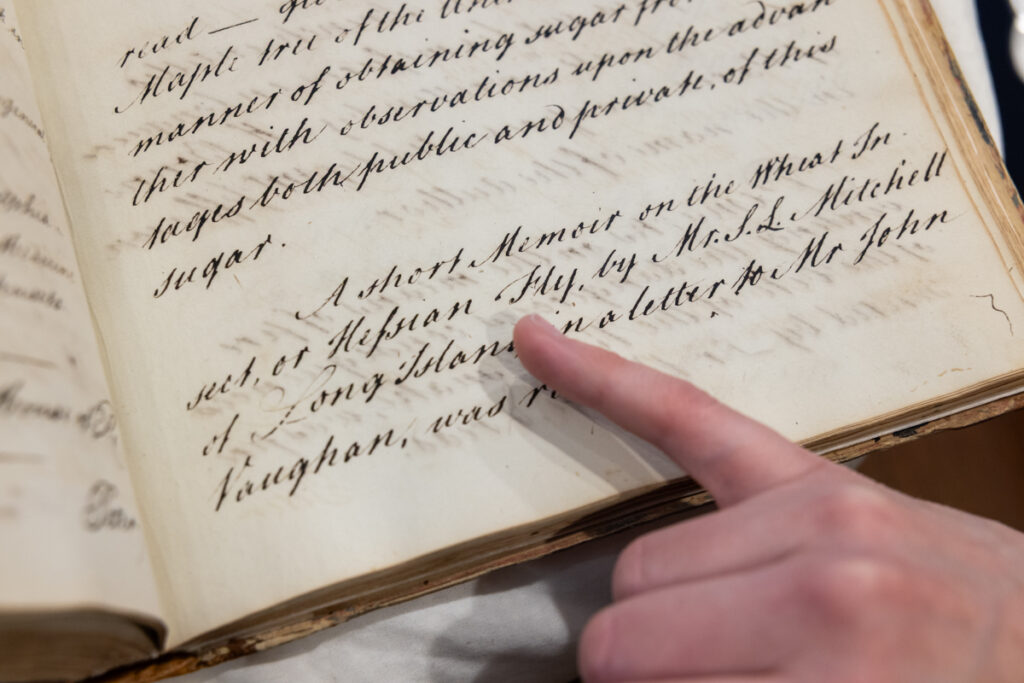 read —
Maple tree of the Uni
manner of obtaining sugar fro
ther with observations upon the advan
tages both public and private, of this
sugar.
A short Memoir on the Wheat In
sect, or Heſsian Fly, by Mr. S. L. Mitchell
of Long Island in a letter to Mr John
Vaughan, was r